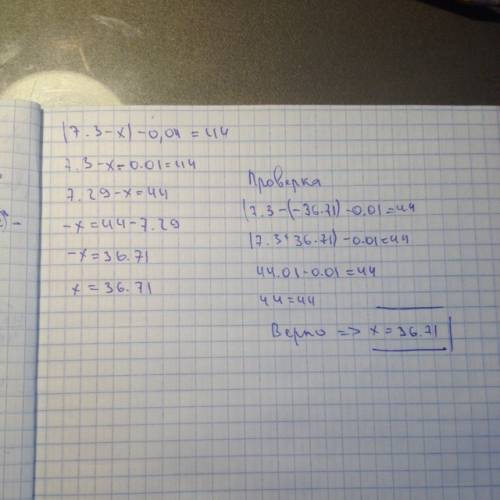 (7.3-x)-0,01=44
7.3-x-0.01=44
7.29-x=44
-x=44-7.29
-x=36.71
x=36.71
Проверка
(7.3-(-36.71)-0.01=44
(7.3+36.71)-0.01=44
44.01-0.01=44
44=44
Верно => x=36.71